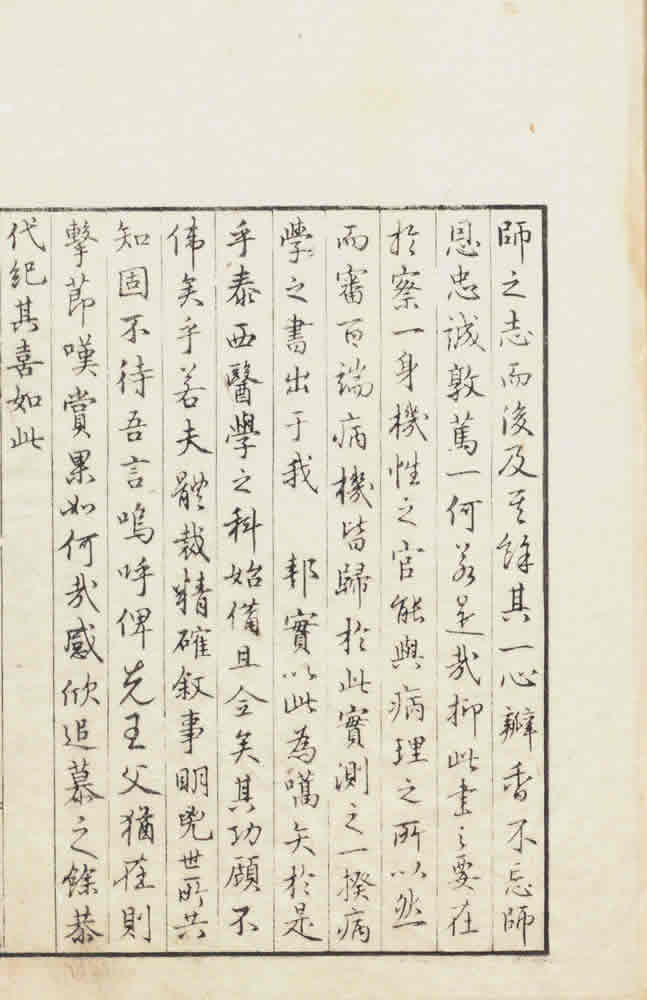 師之志而後及其餘其一心瓣香不忘師
恩忠誠敦篤一何若是哉抑此書之要在
於察一身機性之官能與病理之所以然
而審百端病機皆歸於此實測之一揆病
學之書出于我 邦實以此為嚆矢於是
乎泰西醫學之科始備且全矣其功顧不
偉矣乎若夫體裁精確敘事明鬯世所共
知固不待吾言嗚呼俾先王父猶在則
擊節嘆賞果如何哉感欣追慕之餘恭
代紀其喜如此